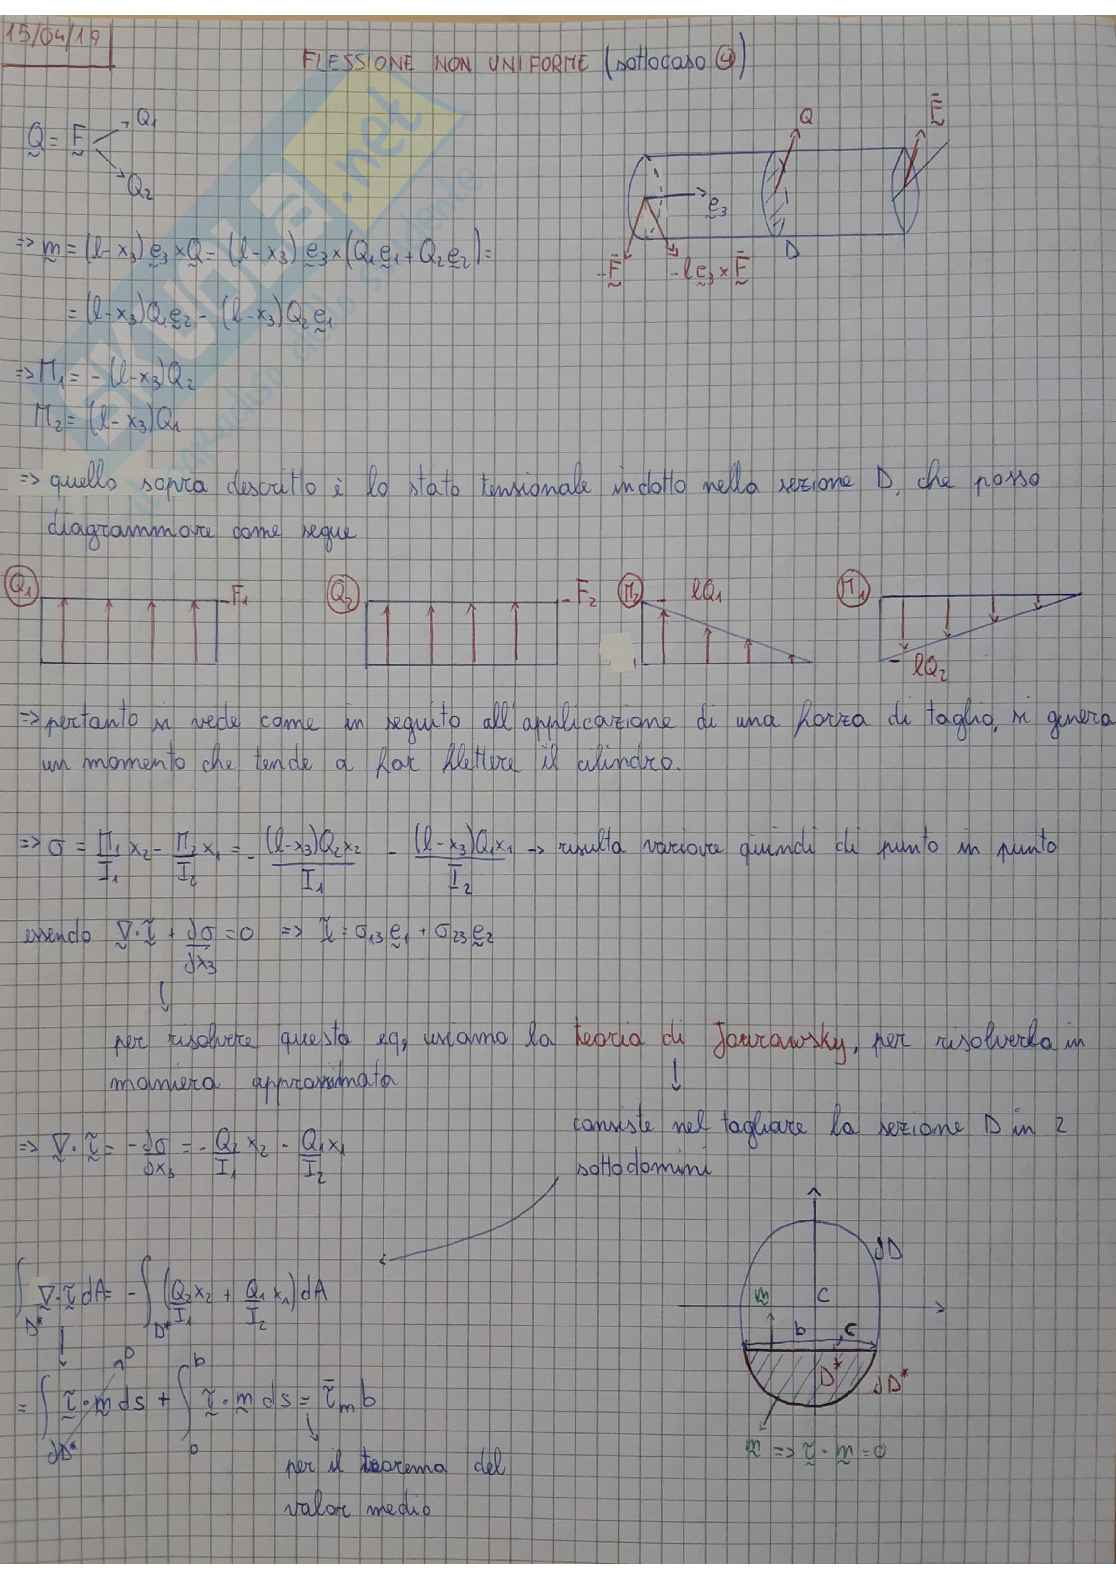 15/04/19
FLESSIONE NON UNIFORME (sottocaso ④)
Q = F
Q1
Q2
Q
F̄
e3
-F̄
-l e3 × F̄
D
=> m = (l-x3) e3 × Q = (l-x3) e3 × (Q1 e1 + Q2 e2) =
= (l-x3) Q1 e2 - (l-x3) Q2 e1
=> M1 = -(l-x3) Q2
M2 = (l-x3) Q1
=> quello sopra descritto è lo stato tensionale indotto nella sezione D, che posso
diagrammare come segue
Q1 - F1
Q2 - F2
M2 - lQ1
M1 - lQ2
=> pertanto si vede come in seguito all'applicazione di una forza di taglio, si genera
un momento che tende a far flettere il cilindro.
=> σ = M1/I1 x2 - M2/I2 x1 = - (l-x3)Q2x2/I1 - (l-x3)Q1x1/I2 -> risulta variare quindi di punto in punto
essendo ∇·τ + ∂σ/∂x3 = 0 => τ = σ13 e1 + σ23 e2
per risolvere questa eq, usiamo la teoria di Jourawsky, per risolverla in
maniera approssimata
consiste nel tagliare la sezione D in 2
sottodomini
=> ∇·τ = -∂σ/∂x3 = - Q2/I1 x2 - Q1/I2 x1
∫D* ∇·τ dA = -∫D* (Q2/I1 x2 + Q1/I2 x1) dA
= ∫∂D* τ·n ds + ∫b b τ·m ds = τ̄m b
0
per il teorema del
valor medio
∂D
C
m
b
c
D*
∂D*
n => τ·n = 0
SKUOLA.net